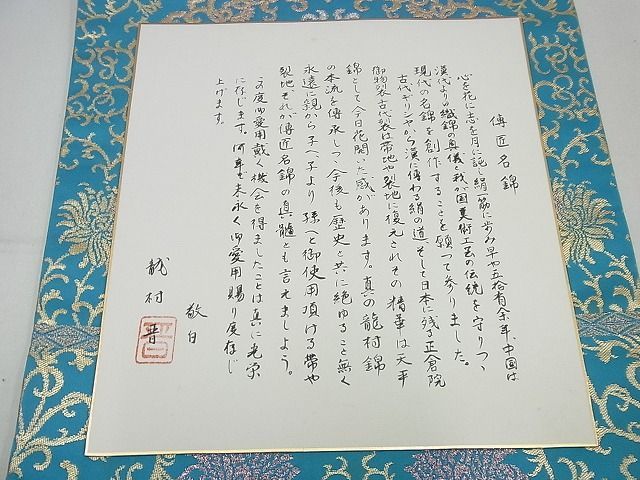 傳匠名錦
心を花に志を月に託し絹一筋に歩み早や五拾有余年、中国は
漢代よりの織錦の真儀と我が国美術工芸の伝統を守りつゝ
現代の名錦を創作することを願って参りました。
古代ギリシヤから漢に傳わる絹の道そして日本に残る正倉院
御物裂古代裂は帯地や裂地に復元されその精華は天平
錦として今日花開いた感があります。真の龍村錦
の本流を傳承しつゝ今後も歴史と共に絶ゆること無く
永遠に親から子へ子より孫へと御使用頂ける帯や
裂地それが傳匠名錦の真髄とも言えましよう。
この度御愛用戴く機会を得ましたことは真に光栄
に存じます。何卒末永く御愛用賜り度存じ
上げます。
敬白
龍村晋
晋